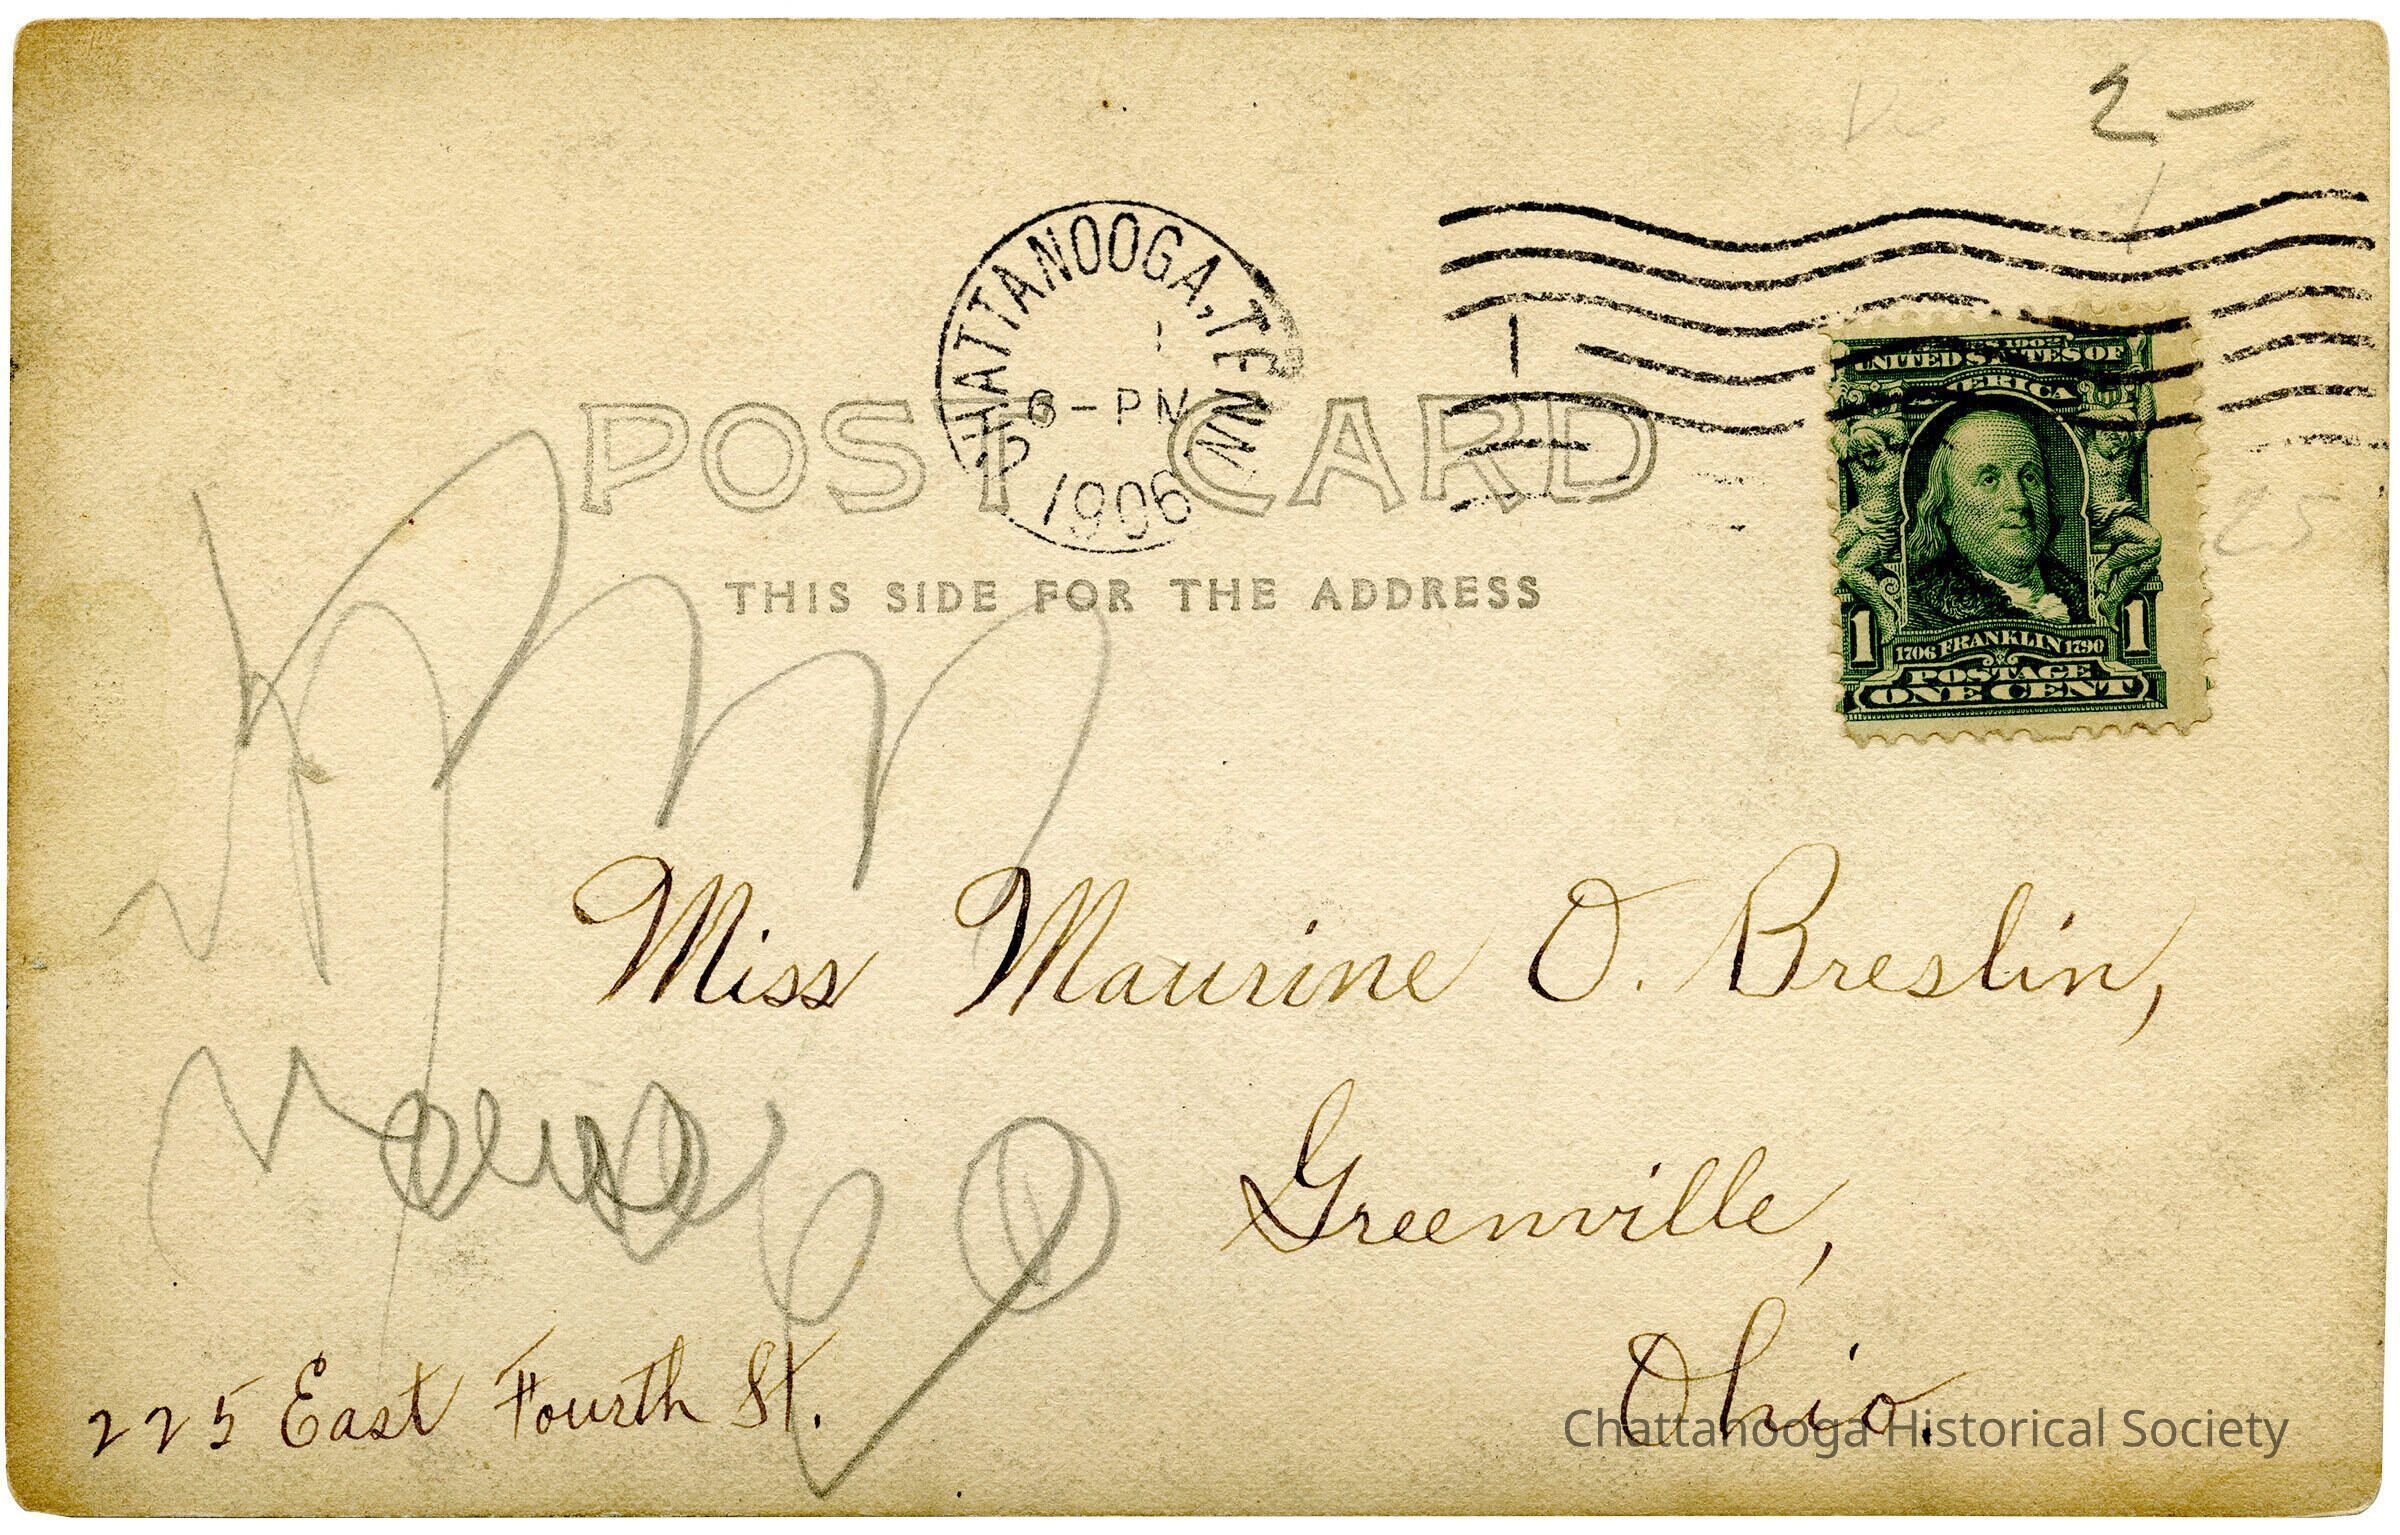 2-
CHATTANOOGA, TENN.
6-PM
1906
POST CARD
THIS SIDE FOR THE ADDRESS
SERIES 1902
UNITED STATES OF
AMERICA
1706 FRANKLIN 1790
1 1
POSTAGE
ONE CENT
25
Miss Maurine O. Breslin,
Greenville,
Ohio.
225 East Fourth St.
Chattanooga Historical Society